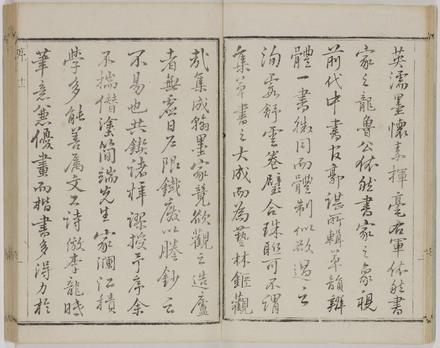 英濡墨懷素揮毫右軍依然書
家之龍魯公依然書家之象視
前代中書官郭諶所輯草韻辨
體一書雖同而體制似欲過之
洵霞舒雲卷璧合珠聯可不謂
集草書之大成而為藝林鉅觀
哉集成翰墨家競欲觀之造廬
者無虛日屢限鐵廢以謄鈔之
不易也共鋟諸梓謬授予序余
不揣僭塗簡端先生家瀾江積
學多能善屬文工詩倣李龍眠
筆意兼優畫而楷書多得力於